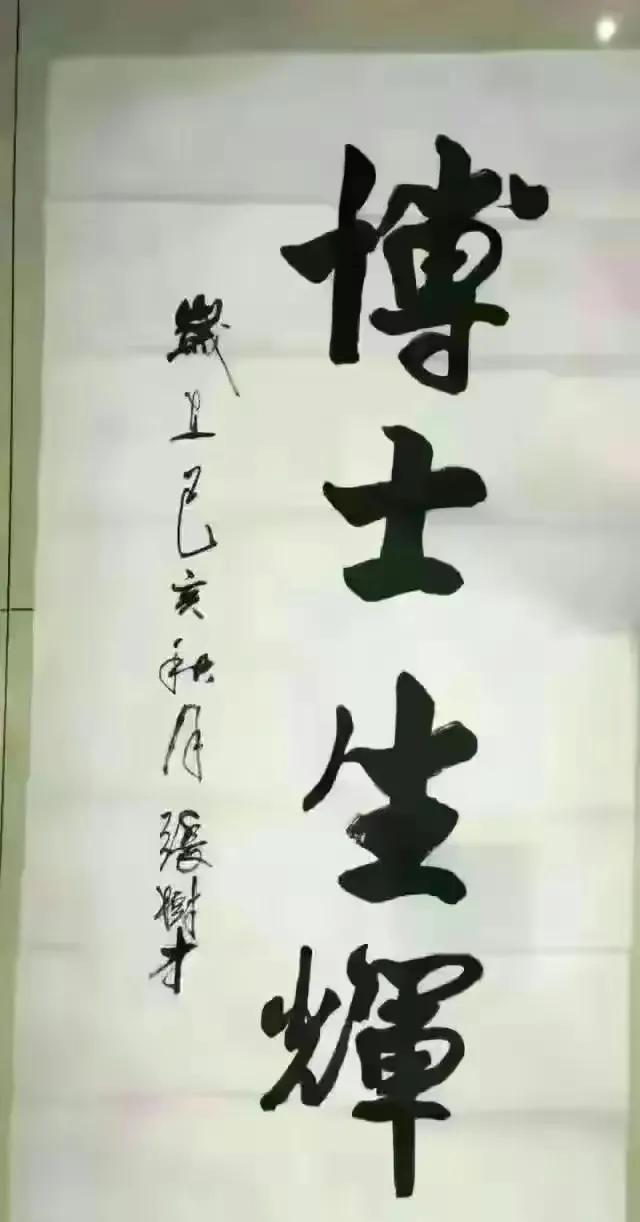 博士生輝
歲上己亥秋月張樹才